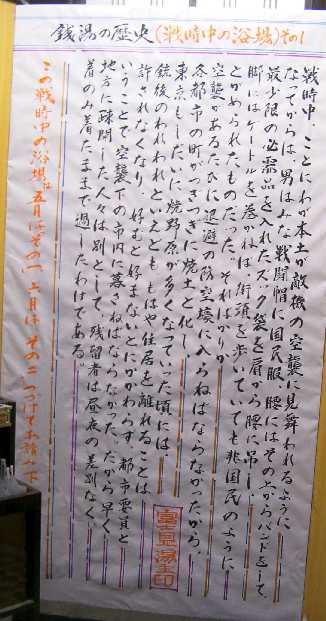 銭湯の歴史(戦時中の浴場)その1
戦時中、ことにわが本土が敵機の空襲に見舞われるように
なってからは、男はみな戦闘帽に国民服、腰にはその上からバンドをして、
最少限の必需品を入れたズック袋を肩から腰に吊し
脚にはゲートルを巻かねば街頭を歩いていても非国民のように、
とがめられたものだった。そればかりか
空襲があるたびに退避の防空壕に入らねばならなかったから、
各都市の町がつぎつぎに焼土と化し
東京もしだいに焼野原が多くなっていった頃には、
銃後のわれわれといえどももはや住居を離れることは
許されなくなり、好むと好まないとにかかわらず、都市要員と
いうことで空襲下の市内に暮さねばならなかった。だから早く、
地方に疎開した人々は別として、残留者は昼夜の差別なく、
着のみ着たままで過したわけである。
この戦時中の浴場は五月はその一、六月はその二つづけてお読み下
富士見湯主印